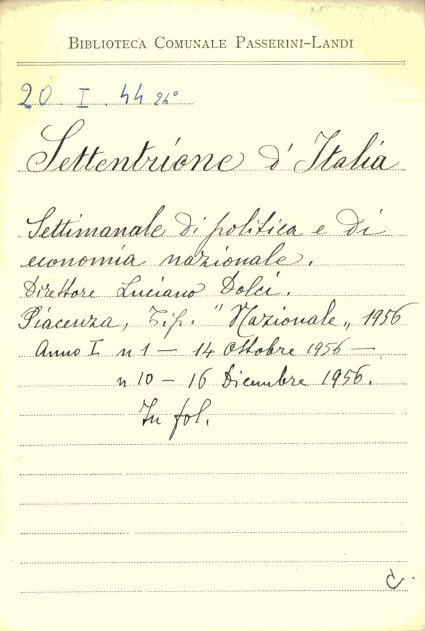 BIBLIOTECA COMUNALE PASSERINI-LANDI
20. I. 44 24°
Settentrione d'Italia
Settimanale di politica e di
economia nazionale.
Direttore Luciano Dolci.
Piacenza, Tip. "Nazionale„ 1956
Anno I n 1 — 14 Ottobre 1956 —
n 10 — 16 Dicembre 1956.
In fol.